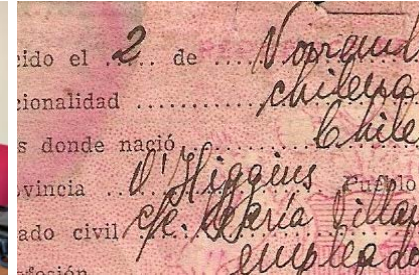 ido el 2 de
cionalidad chilena
s donde nació Chile
vincia O'Higgins Pueblo
ado civil c/c. María Villa
fesión emplead